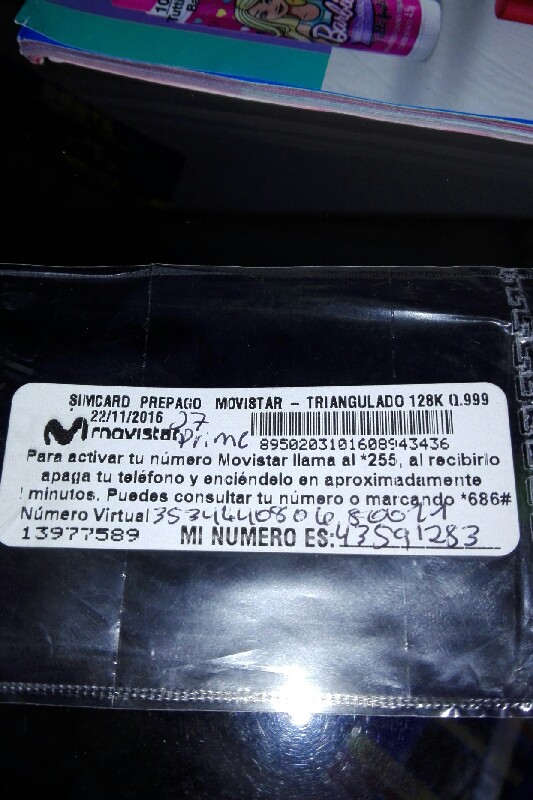 10
Tutti
Barbie
SIMCARD PREPAGO MOVISTAR - TRIANGULADO 128K Q.999
22/11/2016 J7
movistar Prime 8950203101608943436
Para activar tu número Movistar llama al *255, al recibirlo
apaga tu teléfono y enciéndelo en aproximadamente
minutos. Puedes consultar tu número o marcando *686#
Número Virtual
13977589 MI NUMERO ES: 43591283